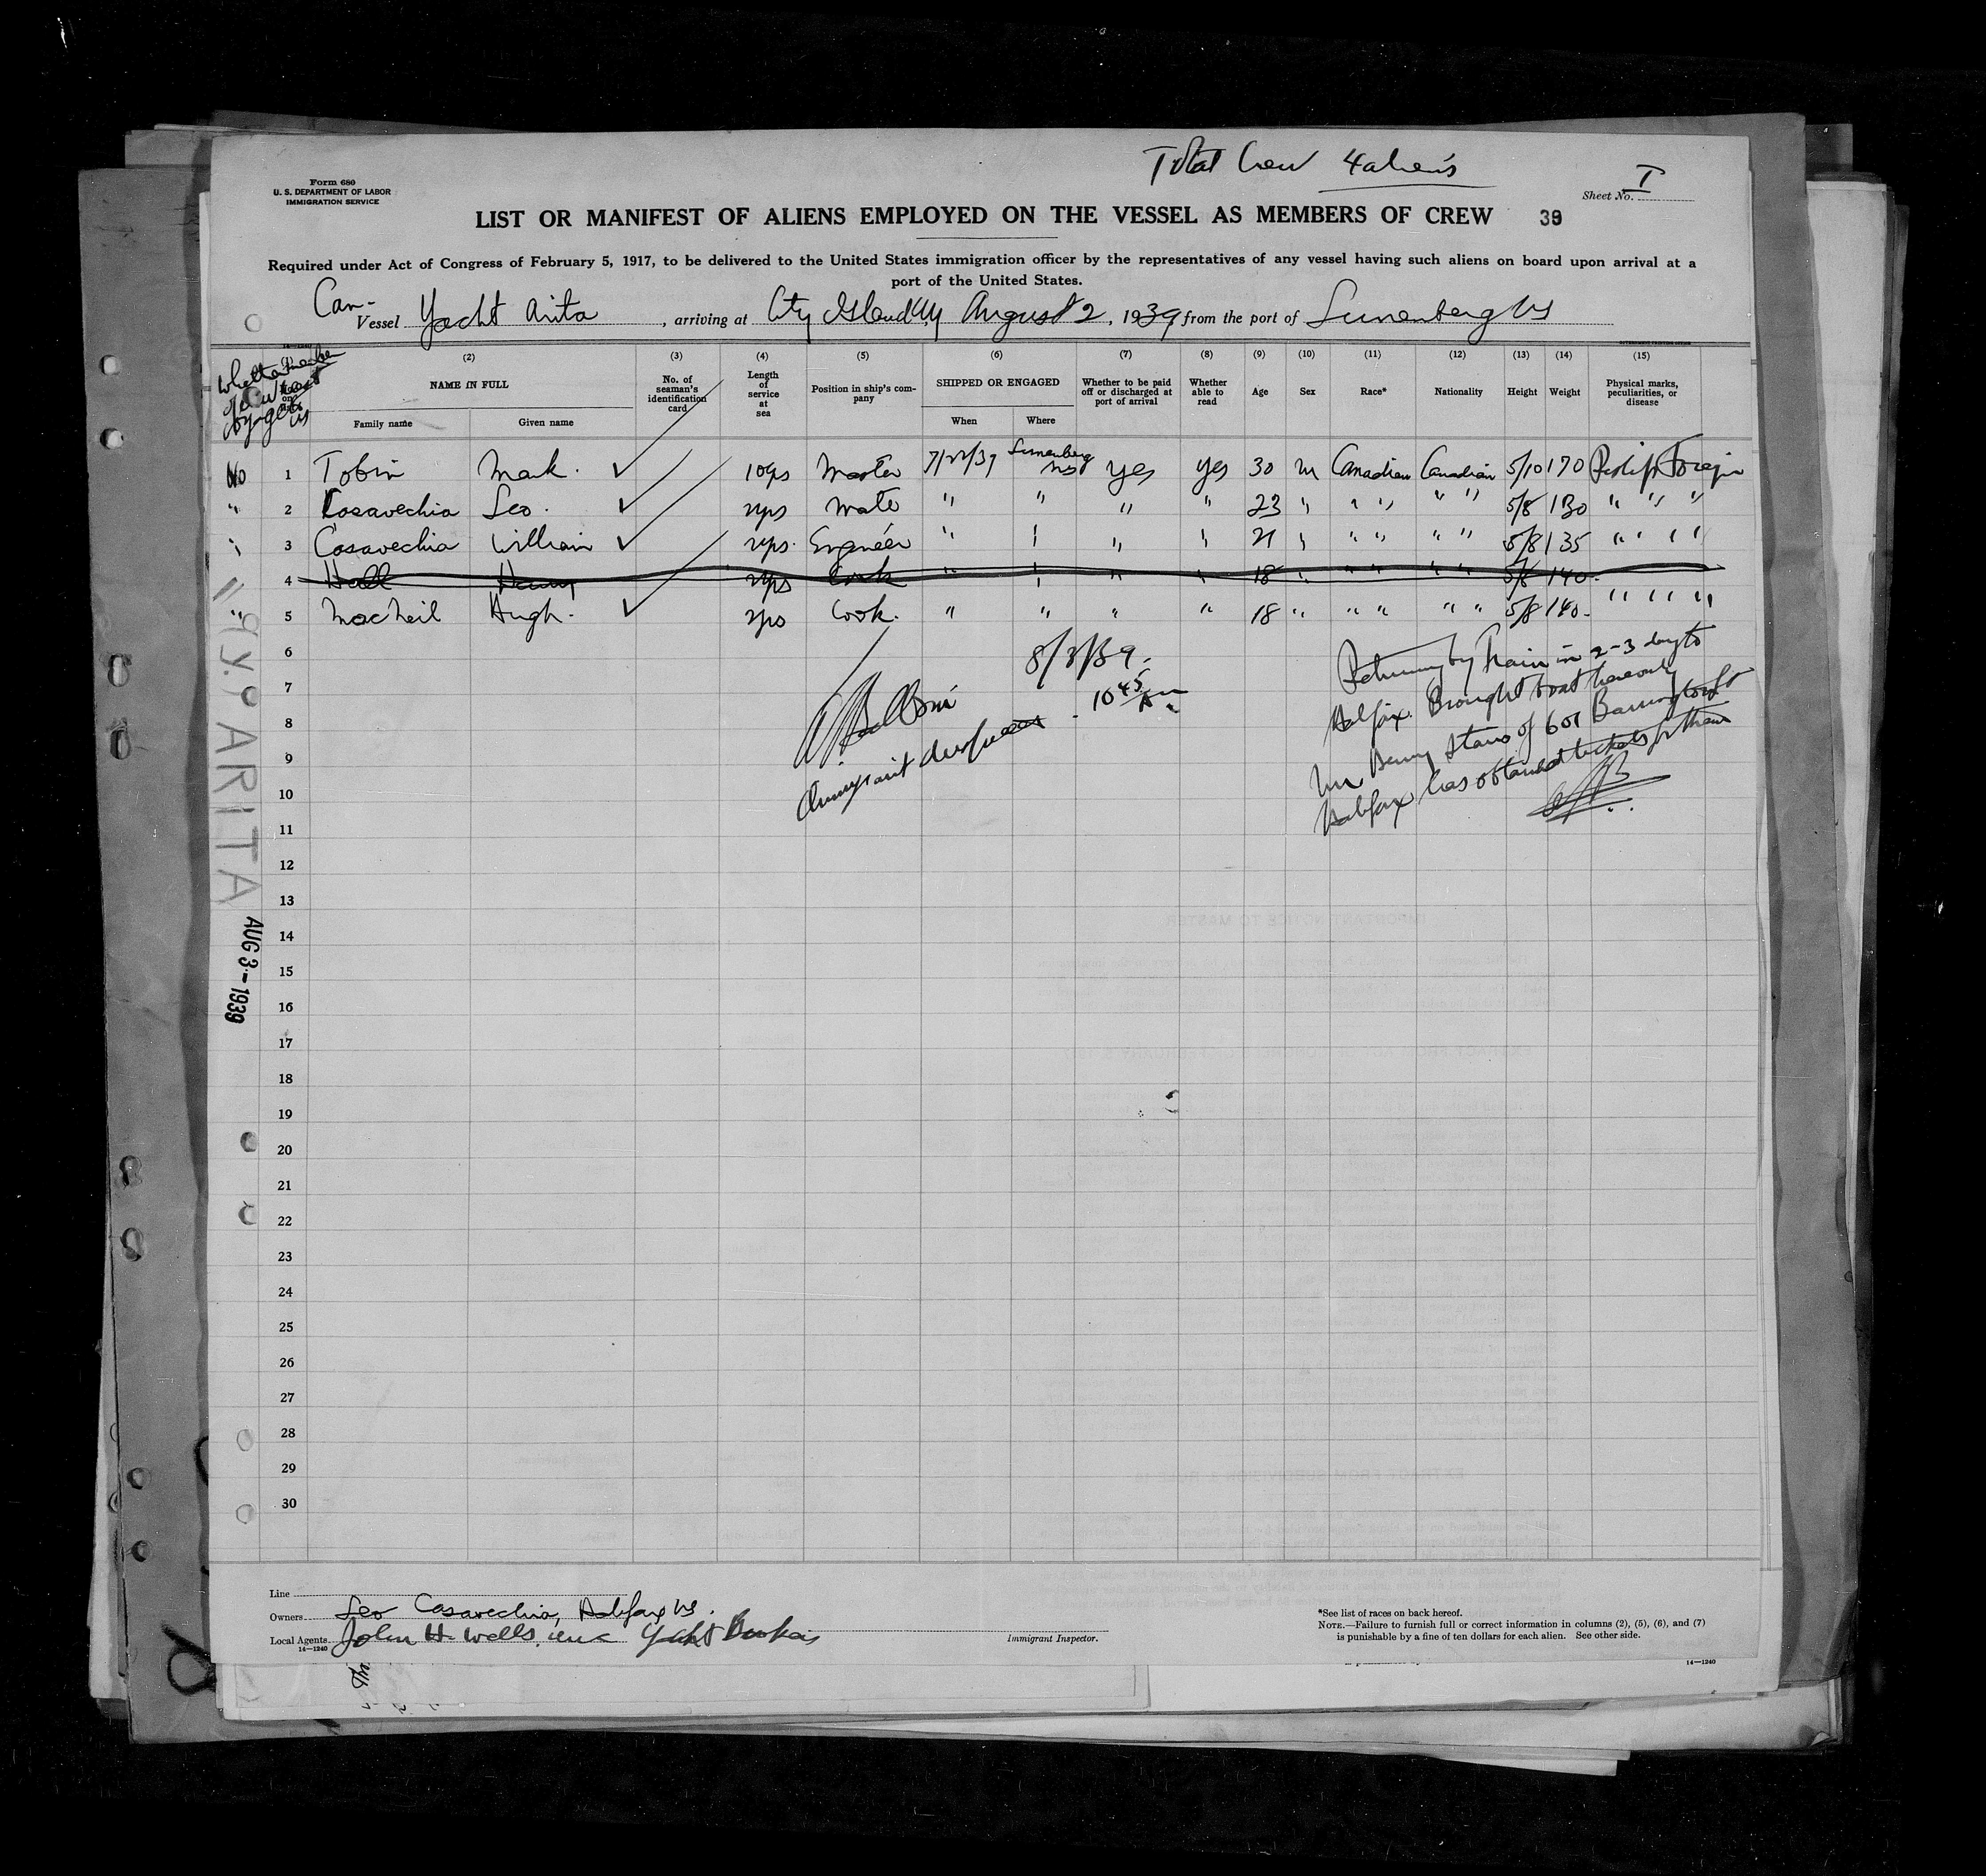 Total Crew 4 aliens
Form 680
U. S. DEPARTMENT OF LABOR
IMMIGRATION SERVICE
Sheet No. I
LIST OR MANIFEST OF ALIENS EMPLOYED ON THE VESSEL AS MEMBERS OF CREW 39
Required under Act of Congress of February 5, 1917, to be delivered to the United States immigration officer by the representatives of any vessel having such aliens on board upon arrival at a
port of the United States.
Can-
Vessel Yacht Arita, arriving at City Island NY August 2, 1939, from the port of Lunenberg NS
14-1240
(2) (3) (4) (5) (6) (7) (8) (9) (10) (11) (12) (13) (14) (15)
NAME IN FULL No. of seaman's identification card Length of service at sea Position in ship's company SHIPPED OR ENGAGED Whether to be paid off or discharged at port of arrival Whether able to read Age Sex Race* Nationality Height Weight Physical marks, peculiarities, or disease
Family name Given name When Where
No 1 Tobin Mark. 10yrs Master 7/22/39 Lunenberg NS yes yes 30 M Canadian Canadian 5/10 170
" 2 Casavechia Leo. 2yrs Mate " " " " 23 " " " " " 5/8 130 " " "
" 3 Casavechia William 2yrs. Engineer " " " " 21 " " " " " 5/8 135 " " " "
4 Hall Henry 2yrs Cook " " " " 18 " " " " " 5/8 140-
" 5 MacNeil Hugh. 2yrs Cook. " " " " 18 " " " " " 5/8 140- " " " "
6
7
8
9
10
11
12
13
14
15
16
17
18
19
20
21
22
23
24
25
26
27
28
29
30
8/3/39.
10 45 Am
Immigrant Inspector
Returning by Train in 2-3 days to
Halifax. Brought boat here only
Mr Henry of 601 Barrington St
Halifax has obtained tickets for them
ARITA
AUG 3-1939
Line
Owners Leo Casavechia, Halifax NS.
Local Agents John H. Wells, inc Yacht Brokers
14-1240
Immigrant Inspector.
*See list of races on back hereof.
NOTE.—Failure to furnish full or correct information in columns (2), (5), (6), and (7)
is punishable by a fine of ten dollars for each alien. See other side.
14-1240